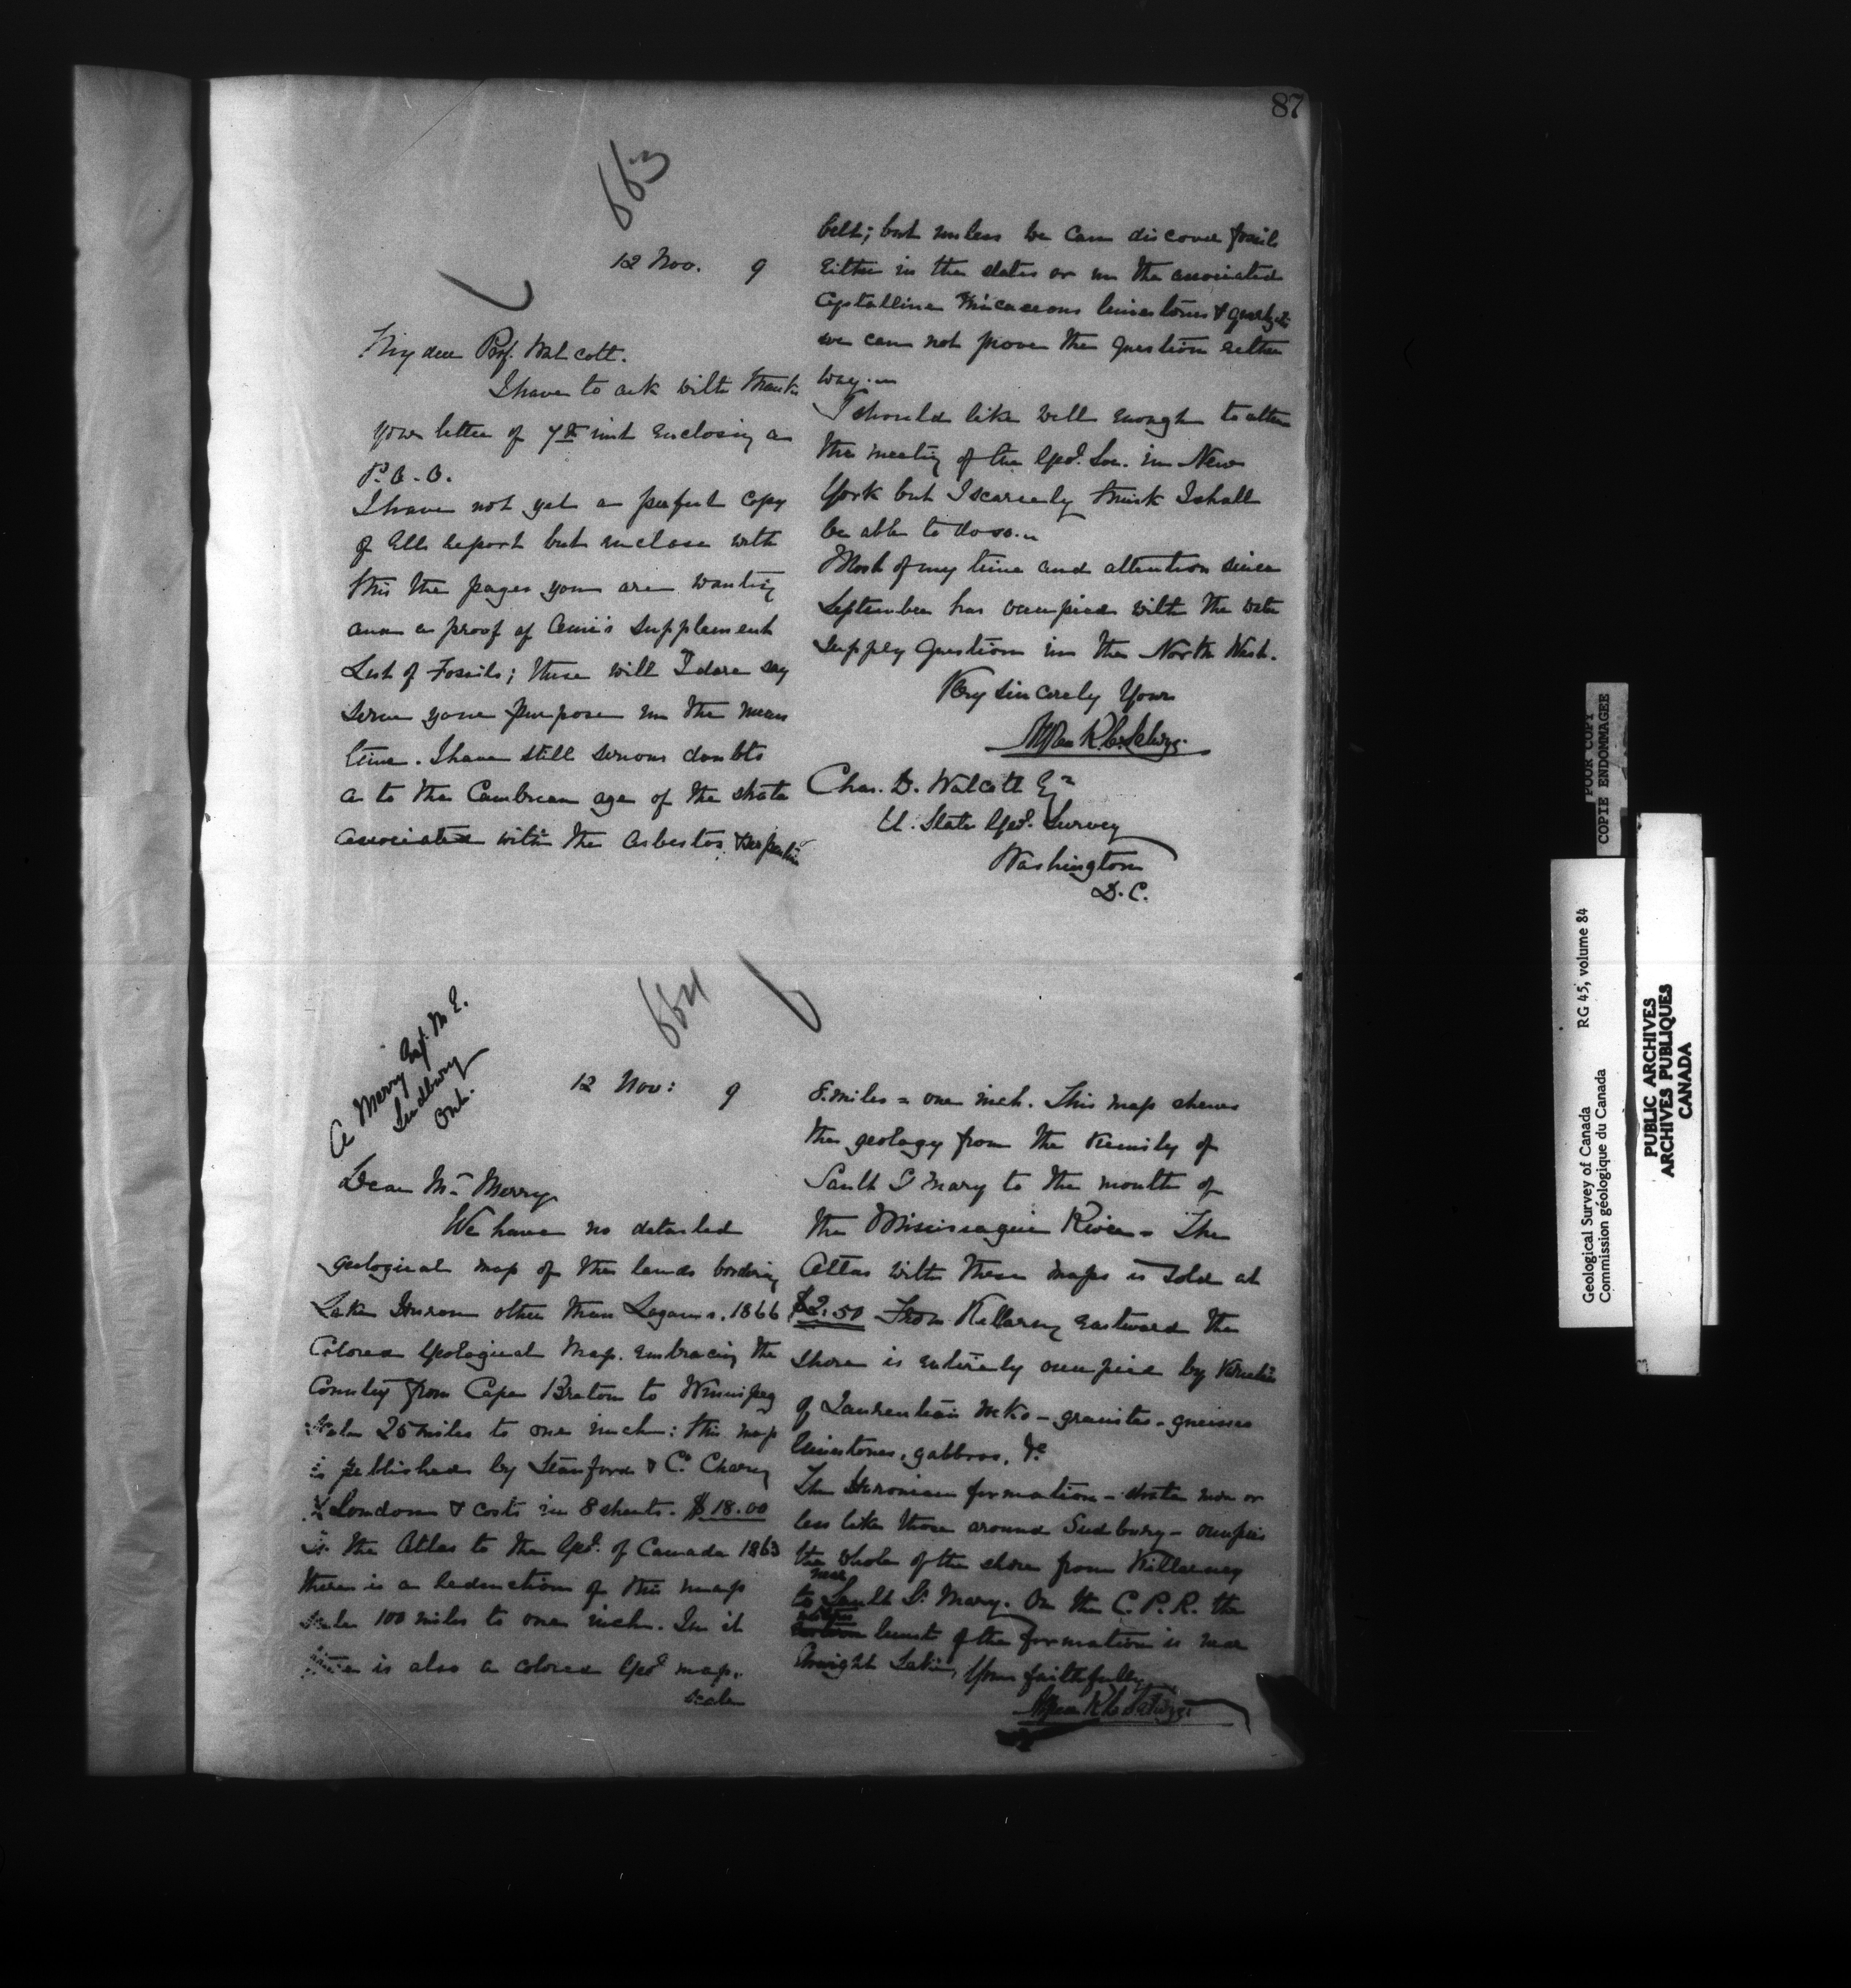 87
663
12 Nov. 9
My dear Prof. Walcott.
I have to ack with thanks
your letter of 7th inst enclosing a
P.O.O.
I have not yet a perfect copy
of Ells report but inclose with
this the pages you are wanting
and a proof of Ami's supplement
List of Fossils; these will I dare say
serve your purpose in the mean
time. I have still serious doubts
as to the Cambrian age of the strata
associated with the asbestos serpentine
belt; but unless we can discover fossils
either in the slates or in the associated
Crystalline Micaceous limestones & quartzites
we can not prove the question either
way.
I should like well enough to atten
the meeting of the Geol. Soc. in New
York but I scarcely think I shall
be able to do so.
Most of my time and attention since
September has occupied with the water
supply question in the North West.
Very sincerely Yours
Alfred R. C. Selwyn
Chas. D. Walcott Eqr
U. State Geol. Survey
Washington
D.C.
664
A Merry Esq. M E.
Sudbury
Ont.
12 Nov: 9
Dear Mr Merry
We have no detailed
geological map of the lands bordering
Lake Huron other than Logan's. 1866
Colored Geological Map. embracing the
Country from Cape Breton to Winnipeg
scale 25 miles to one inch: this map
is published by Stanford & Co Charing
X London & costs in 8 sheets. $18.00
In the Atlas to the Geol. of Canada 1863
there is a reduction of this map
scale 100 miles to one inch. In it
there is also a colored Geol map.
scale
8 miles = one inch. This map shews
the geology from the vicinity of
Sault S Mary to the mouth of
the Mississagui River - The
Atlas with these maps is sold at
$2.50 From Killarney eastward the
shore is entirely occupied by varieties
of Laurentian rocks - granites - gneisses
limestones, gabbros, &c
The Huronian formation - strata more or
less like those around Sudbury - occupies
the whole of the shore from Killarney
near
to Sault St Mary. On the C.P.R. the
limit of the formation is near
Straight Lake, Yours faithfully
Alfred R C Selwyn
POOR COPY
COPIE ENDOMMAGEE
Geological Survey of Canada RG 45, volume 84
Commission géologique du Canada
PUBLIC ARCHIVES
ARCHIVES PUBLIQUES
CANADA